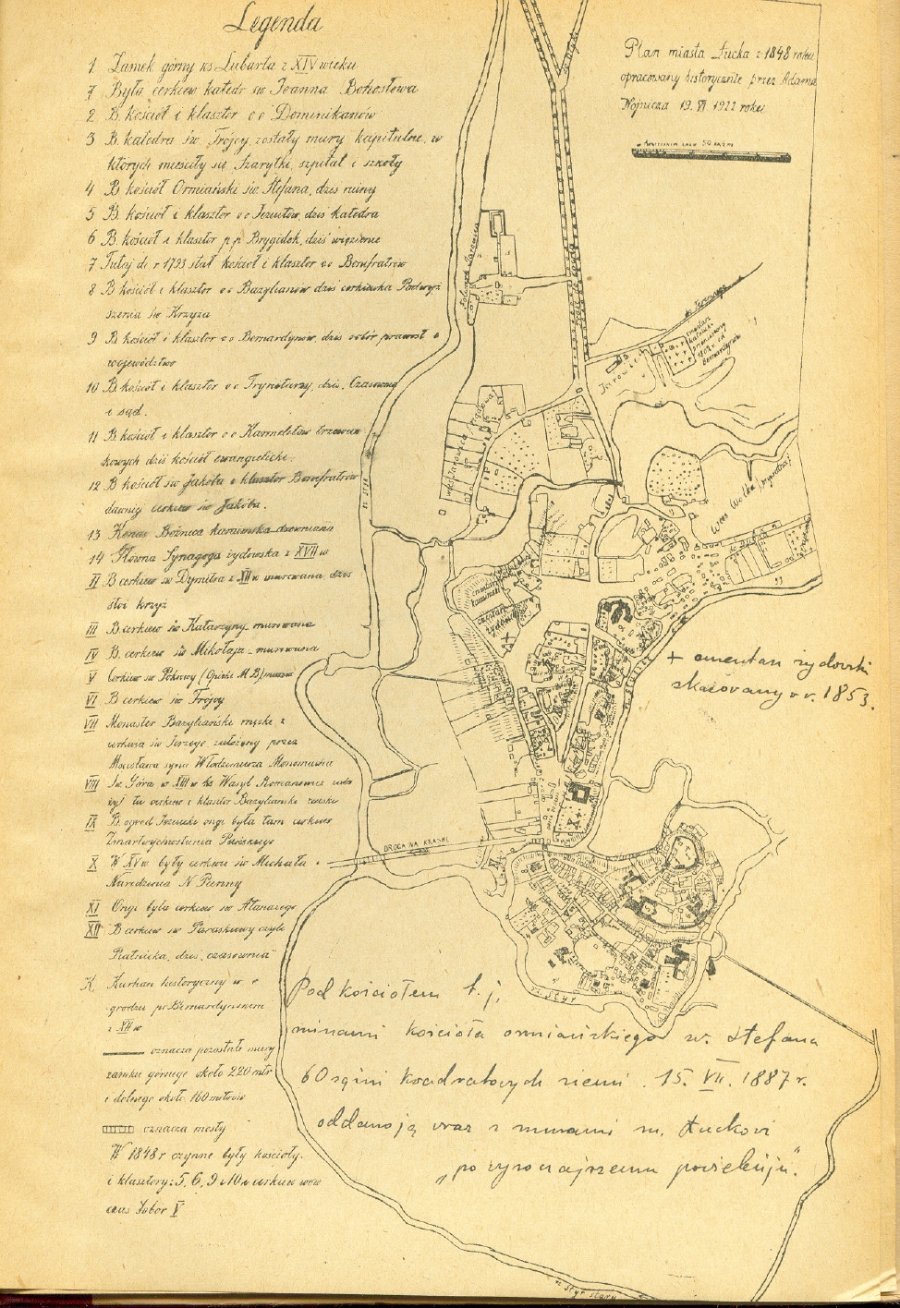 Legenda
1 Zamek górny ks Lubarta z XIV wieku
Była cerkiew katedr św Joanna Bohosłowa
2 B. kościół i klasztor o o Dominikanów
3 B. katedra św. Trójcy, zostały mury kapitulne, w
których mieściły się Szarytki, szpital i szkoły
4 B. kościół Ormiański św. Stefana, dziś ruiny
5 B. kościół i klasztor o o Jezuitów, dziś katedra
6 B. kościół i klasztor p.p. Brygidek, dziś więzienie
7 Tutaj do r 1793 stał kościół i klasztor o o Bonifratrów
8 B kościół i klasztor o o Bazylianów dziś cerkiewka Podwyż
szenia św Krzyża
9 B kościół i klasztor o o Bernardynów, dziś sobór prawosł i
województwo
10 B kościół i klasztor o o Trynitarzy, dziś
i sąd.
11 B kościół i klasztor o o Karmelitów trzewicz
kowych dziś kościół ewangielicki.
12 B kościół św Jakóba i klasztor Bonifratrów
dawniej cerkiew św Jakóba.
13 Kenesa Bożnica karaimska drewniana
14 Główna Synagoga żydowska z XVII w
II B cerkiew św Dymitra z XII w murowana dziś
stoi krzyż
III B cerkiew św Katarzyny murowana
IV B. cerkiew św Mikołaja - murowana
V Cerkiew św Pokrowy (Opieki M.B.)
VI B cerkiew św Trójcy
VII Monaster Bazyliański męski i
cerkiew św Jerzego założony przez
Mścisława syna Włodzimierza Monomacha
VIII Św Góra w XIII w ks Wasyl Romanowicz
tu cerkiew i klasztor Bazyliański żeński
IX B. ogród Jezuicki ongi była tam cerkiew
Zmartwychwstania Pańskiego
X W XV w były cerkwie św Michała i
Narodzenia N Panny
XI Ongi była cerkiew św Atanazego
XII B cerkiew św Paraskewy czyli
Piatnicka, dziś
K. Kurhan historyczny w o
grodzie po Bernardyńskim
z XII w
oznacza pozostałe mury
zamku górnego około 220 mtr
i dolnego około 160 metrów
oznacza mosty
W 1848 r czynne były kościoły
i klasztory: 5, 6, 9 i 10 i cerkiew
Sobór V
Plan miasta Łucka z 1848 roku
opracowany historycznie przez Adama
Wojnicza 19. VI 1922 roku
50 sążni
cmentarz
katolicki
Jarowica
Wieś Wólka (prywatna)
cmentarz
karaimski
cmentarz
żydowski
+ cmentarz żydowski
skasowany w r. 1853.
DROGA NA KRASNE
rz. Styr
Pod kościołem t. j.
ruinami kościoła ormiańskiego św. Stefana
60 sążni kwadratowych ziemi. 15. VII. 1887 r.
oddano ją wraz z murami m. Łuckowi
"po wysoczajszemu powieleniju".
rz Styr stary